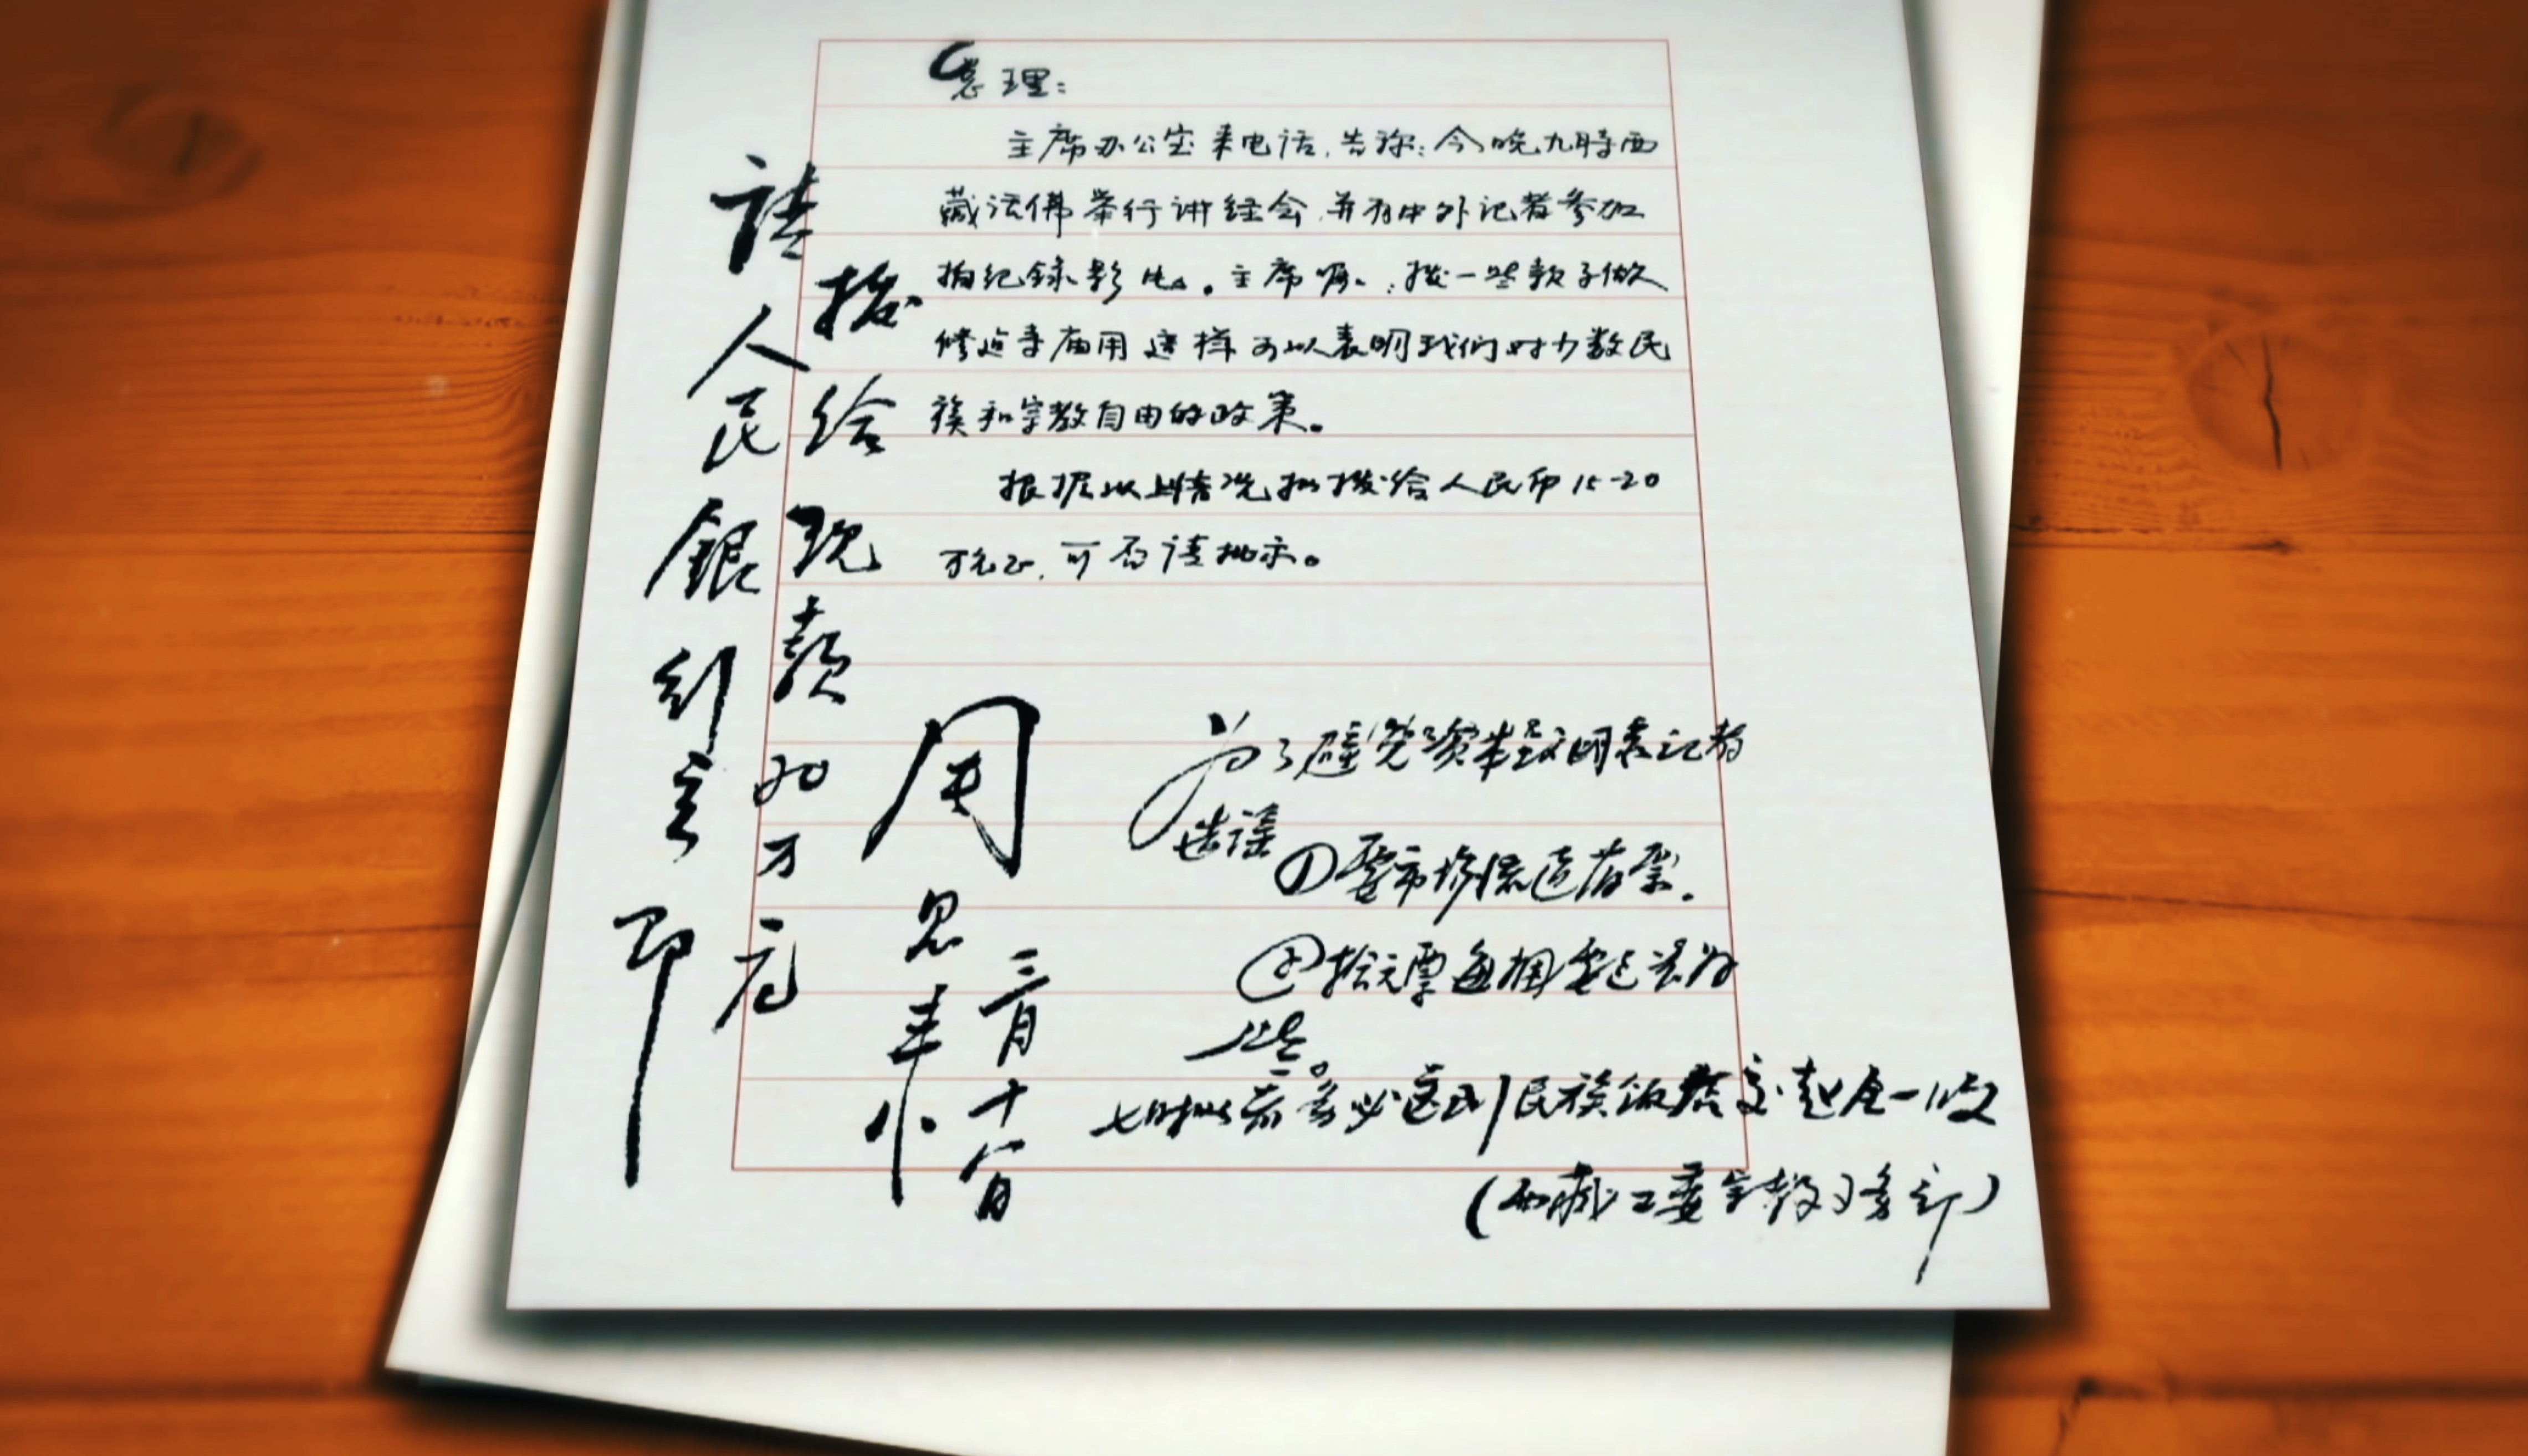 总理：
主席办公室来电话，告称：今晚九時西
藏活佛举行讲经会，并有中外记者参加
拍纪錄影片。主席嘱：拨一些款子做
修造寺庙用 这样可以表明我们对少数民
族和宗教自由的政策。
根据以上情况拟拨给人民币15-20
万元正，可否请批示。
請人民銀行立即
拨给现款20万元
周恩来
三月十八日
为了避免资本主义国家记者
造谣 ①要市场流通旧票。
②拾元票每捆要包装好
些。
七时以前务必送到民族饭店交赵全一收
（西藏工委宗教事务部）